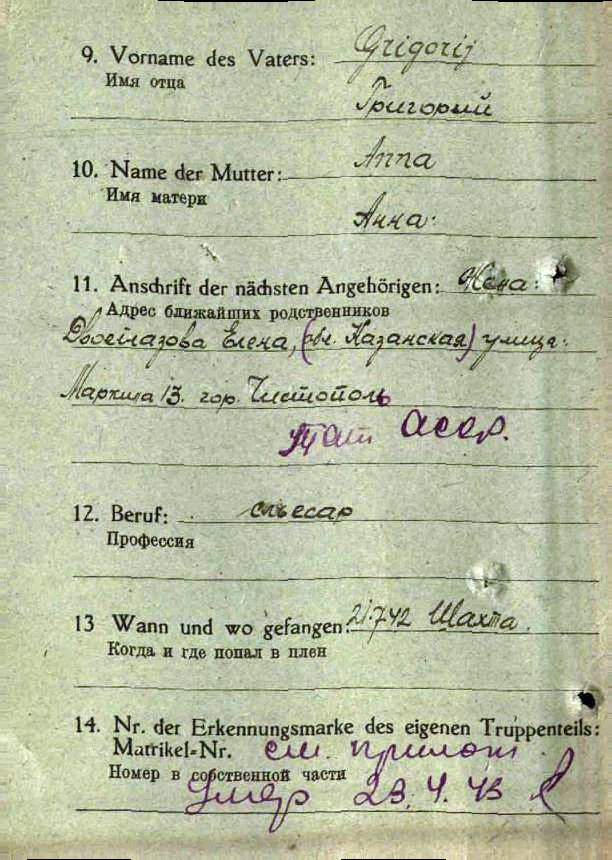 9. Vorname des Vaters: Grigorij
Имя отца
Григорий
10. Name der Mutter: Anna
Имя матери
Анна.
11. Anschrift der nächsten Angehörigen: Жена:
Адрес ближайших родственников
Двоеглазова Елена, (обл. Казанская) улица:
Маркиза 13. гор. Чистополь
Тат Асср.
12. Beruf: слесар
Профессия
13 Wann und wo gefangen: 21.7.42 Шахта.
Когда и где попал в плен
14. Nr. der Erkennungsmarke des eigenen Truppenteils:
Matrikel-Nr. см. прилож
Номер в собственной части
Умер 23.4.43